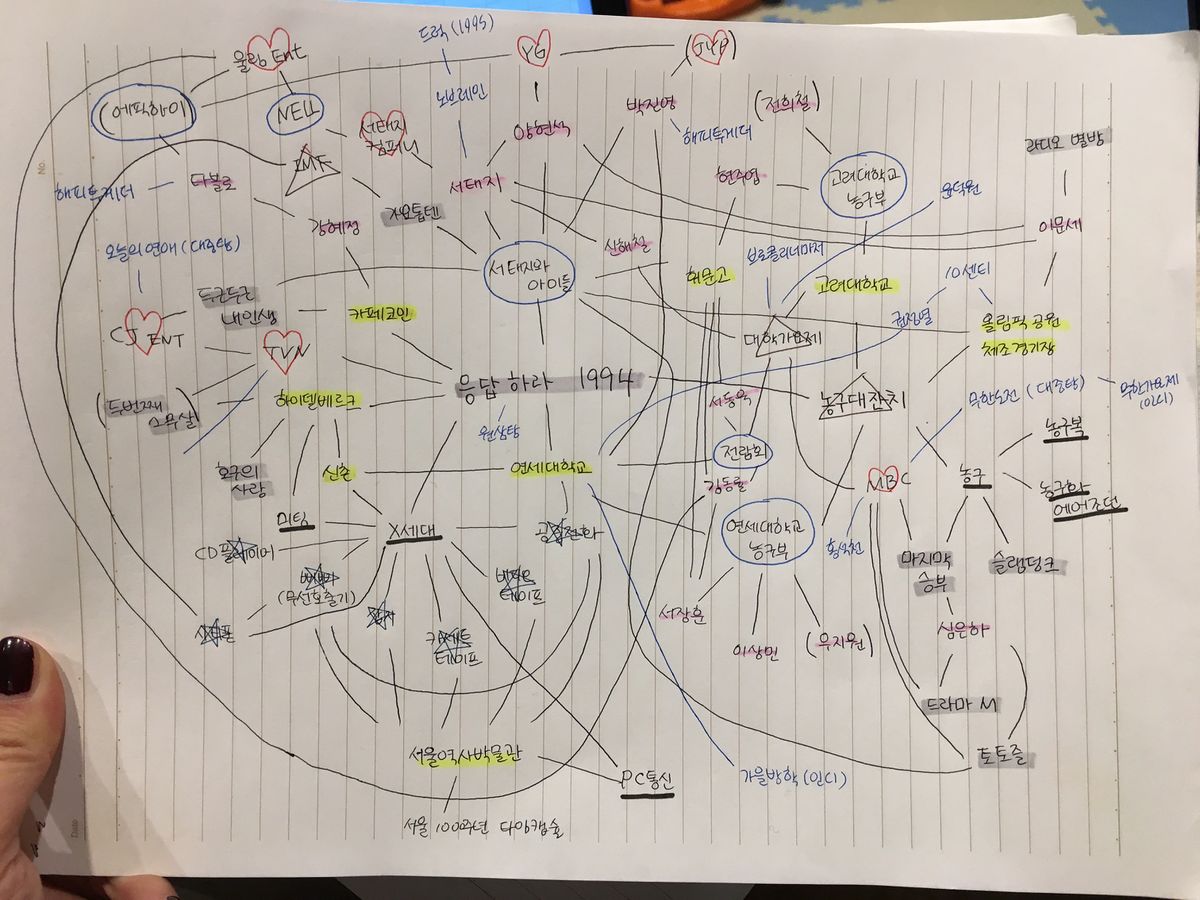 드럭 (1995)
울림 Ent
YG
(JYP)
(에픽하이)
NELL
노브레인
박진영
(전희철)
서태지
컴퍼니
양현석
해피투게더
라디오 별밤
IMF
해피투게더
타블로
서태지
현주엽
고려대학교
농구부
윤덕원
강혜정
가요톱텐
이문세
오늘의 연애 (대중탕)
신해철
브로콜리너마저
서태지와
아이들
휘문고
고려대학교
10센티
두근두근
내인생
카페코인
권정열
올림픽 공원
체조경기장
CJ ENT
TVN
대학가요제
응답하라 1994
(두번째
스무살)
하이델베르크
서동욱
농구대잔치
무한도전 (대중탕)
무한가요제
(인디)
원삼탕
전람회
농구복
호구의
사랑
신촌
연세대학교
김동률
MBC
농구
농구화
에어조던
삐삐
미팅
X세대
공중전화
연세대학교
농구부
홍석천
CD플레이어
마지막
승부
슬램덩크
(무선호출기)
테이프
서장훈
이상민
(우지원)
심은하
카세트
테이프
드라마 M
서울역사박물관
PC통신
가을방학 (인디)
토토즐
서울 1000주년 타임캡슐